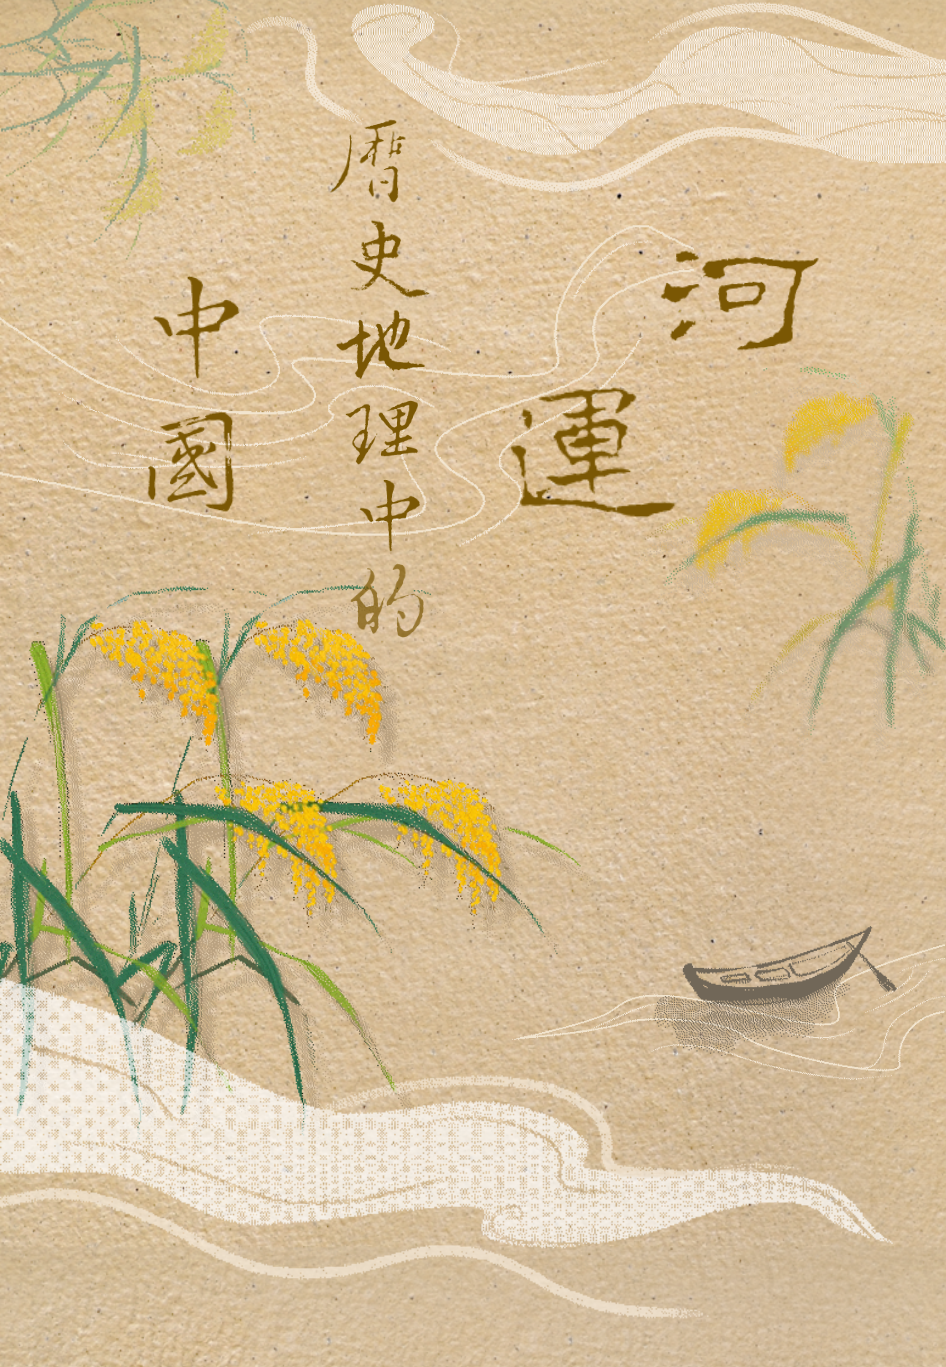 河運
曆史地理中的
中國